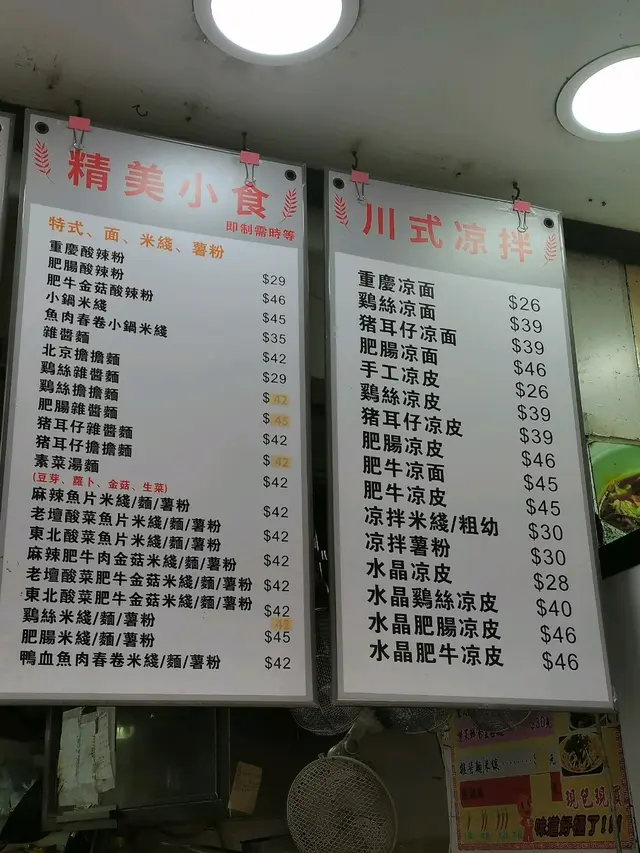 精美小食
即制需時等
特式、面、米綫、薯粉
重慶酸辣粉
肥腸酸辣粉
肥牛金菇酸辣粉
小鍋米綫
魚肉春卷小鍋米綫
雜醬麵
北京擔擔麵
鷄絲雜醬麵
鷄絲擔擔麵
肥腸雜醬麵
猪耳仔雜醬麵
猪耳仔擔擔麵
素菜湯麵
(豆芽、蘿卜、金菇、生菜)
麻辣魚片米綫/麵/薯粉
老壇酸菜魚片米綫/麵/薯粉
東北酸菜魚片米綫/麵/薯粉
麻辣肥牛肉金菇米綫/麵/薯粉
老壇酸菜肥牛金菇米綫/麵/薯粉
東北酸菜肥牛金菇米綫/麵/薯粉
鷄絲米綫/麵/薯粉
肥腸米綫/麵/薯粉
鴨血魚肉春卷米綫/麵/薯粉
$29
$46
$45
$35
$42
$29
$42
$45
$42
$42
$42
$42
$42
$42
$42
$42
42
$45
$42
川式凉拌
重慶凉面 $26
鷄絲凉面 $39
猪耳仔凉面 $39
肥腸凉面 $46
手工凉皮 $26
鷄絲凉皮 $39
猪耳仔凉皮 $39
肥腸凉皮 $46
肥牛凉面 $45
肥牛凉皮 $45
凉拌米綫/粗幼 $30
凉拌薯粉 $30
水晶凉皮 $28
水晶鷄絲凉皮 $40
水晶肥腸凉皮 $46
水晶肥牛凉皮 $46
現包現
味道好極了!!!